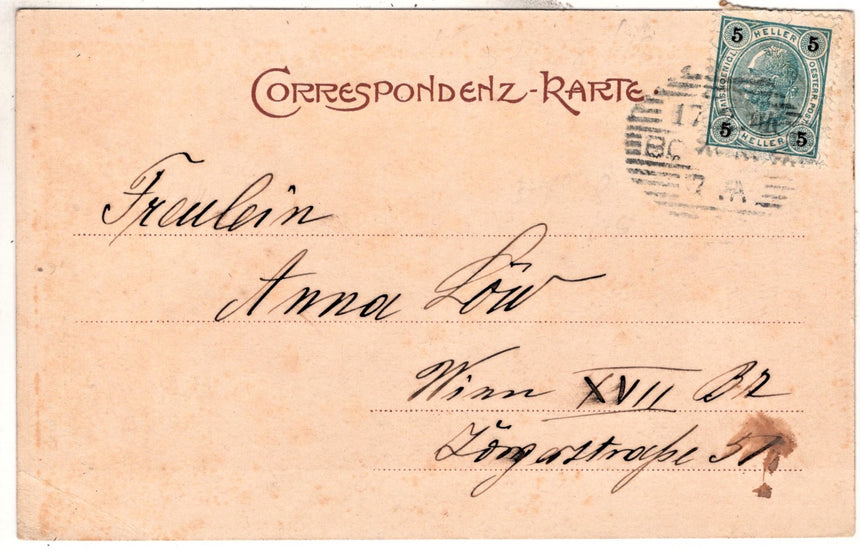 CORRESPONDENZ-KARTE.
5 HELLER 5
KAIS. KOENIGL. OESTERR. POST
5 HELLER 5
17
7
Freulein
Anna Löw
Wien XVII Bz
Zörgerstraße 51